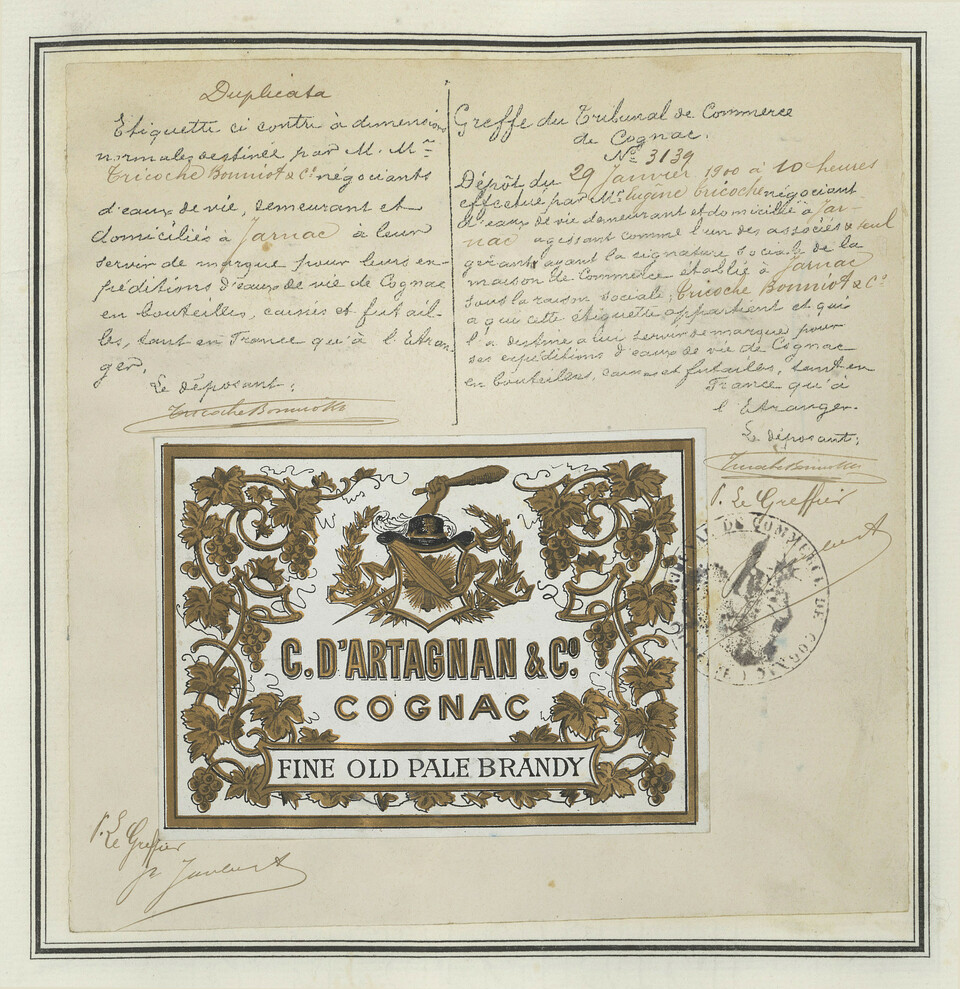 Duplicata
Etiquette ci contre à dimensions
normales destinée par M. Mrs
Tricoche Bonniot & Co négociants
d'eaux de vie, demeurant et
domiciliés à Jarnac à leur
servir de marque pour leurs ex-
péditions d'eaux de vie de Cognac
en bouteilles, caisses et futail-
les, tant en France qu'à l'Etran-
ger.
Le déposant:
Tricoche Bonniot & Co
Greffe du Tribunal de Commerce
de Cognac.
No 3139
Dépôt du 29 Janvier 1900 à 10 heures
effectué par Mr Eugène Tricoche négociant
d'eaux de vie demeurant et domicilié à Jar-
nac agissant comme l'un des associés & seul
gérant ayant la signature sociale de la
maison de Commerce établie à Jarnac
sous la raison sociale; Tricoche Bonniot & Co
a qui cette étiquette appartient et qui
l'a destine a lui servir de marque pour
ses expéditions d'eaux de vie de Cognac
en bouteilles, caisses et futailles, tant en
France qu'à
l'Etranger.
Le déposant;
Tricoche Bonniot & Co
P. Le Greffier
TRIBUNAL DE COMMERCE DE COGNAC
C. D'ARTAGNAN & Co.
COGNAC
FINE OLD PALE BRANDY
P. Le Greffier